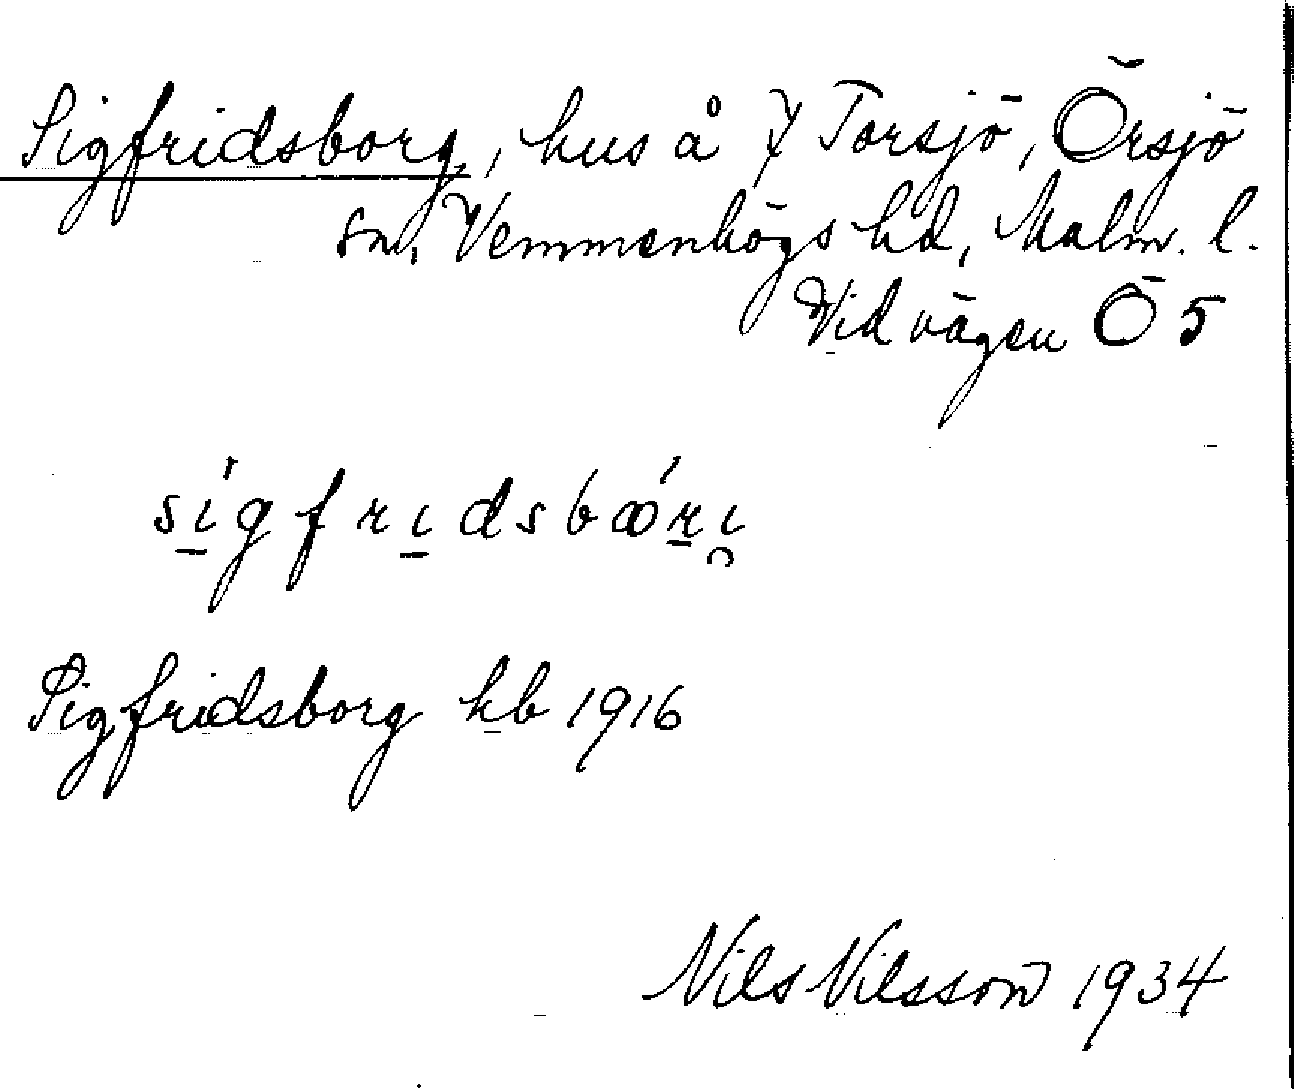 Sigfridsborg, hus å 7 Torsjö, Örsjö
sn, Vemmenhögs hd, Malm. l.
Vid vägen Ö 5
sígfrıdsbǿrı̯
Sigfridsborg kb 1916
Nils Nilsson 1934